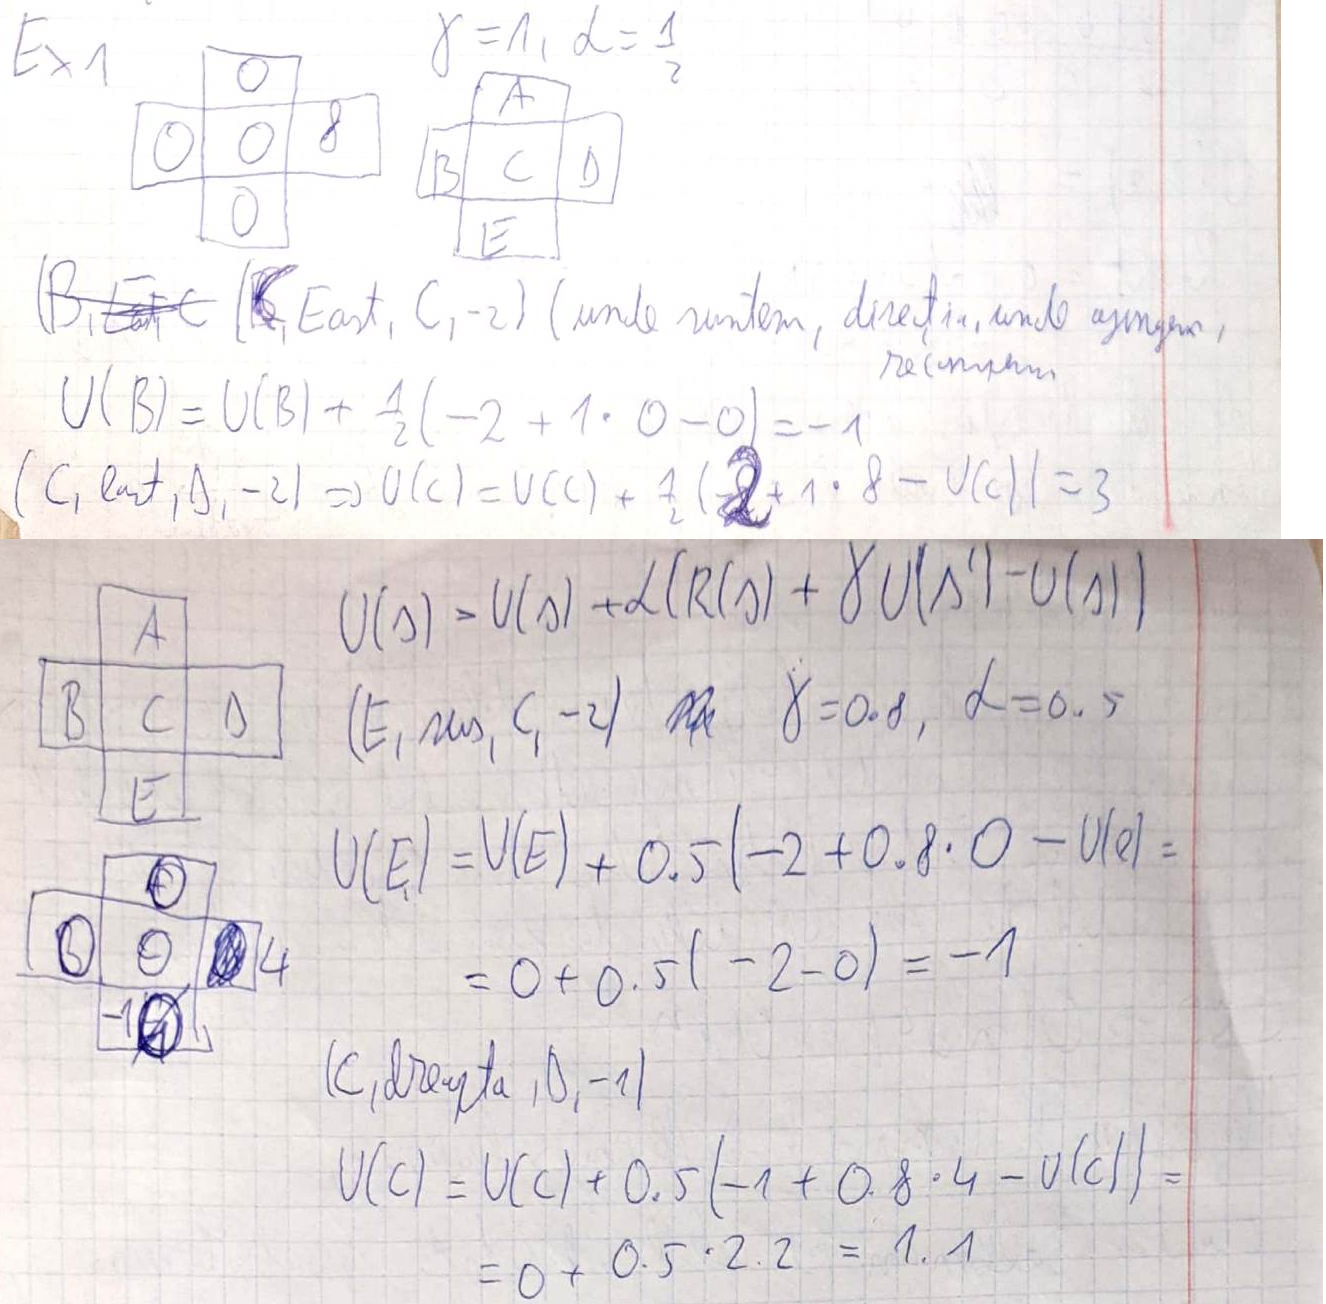 Ex 1
γ = 1, α = 1/2
0
0 0 8
0
A
B C D
E
(B, East, C (B, East, C, -2) (unde suntem, direcția, unde ajungem,
recompensa
U(B) = U(B) + 1/2 (-2 + 1 · 0 - 0) = -1
(C, east, D, -2) => U(C) = U(C) + 1/2 (-2 + 1 · 8 - U(C)) = 3
A
B C D
E
U(s) = U(s) + α(R(s) + γU(s') - U(s))
(E, sus, C, -2) γ = 0.8, α = 0.5
U(E) = U(E) + 0.5(-2 + 0.8 · 0 - U(e) =
= 0 + 0.5(-2 - 0) = -1
0
0 0 4
-1
(C, dreapta, D, -1)
U(C) = U(C) + 0.5(-1 + 0.8 · 4 - U(C)) =
= 0 + 0.5 · 2.2 = 1.1